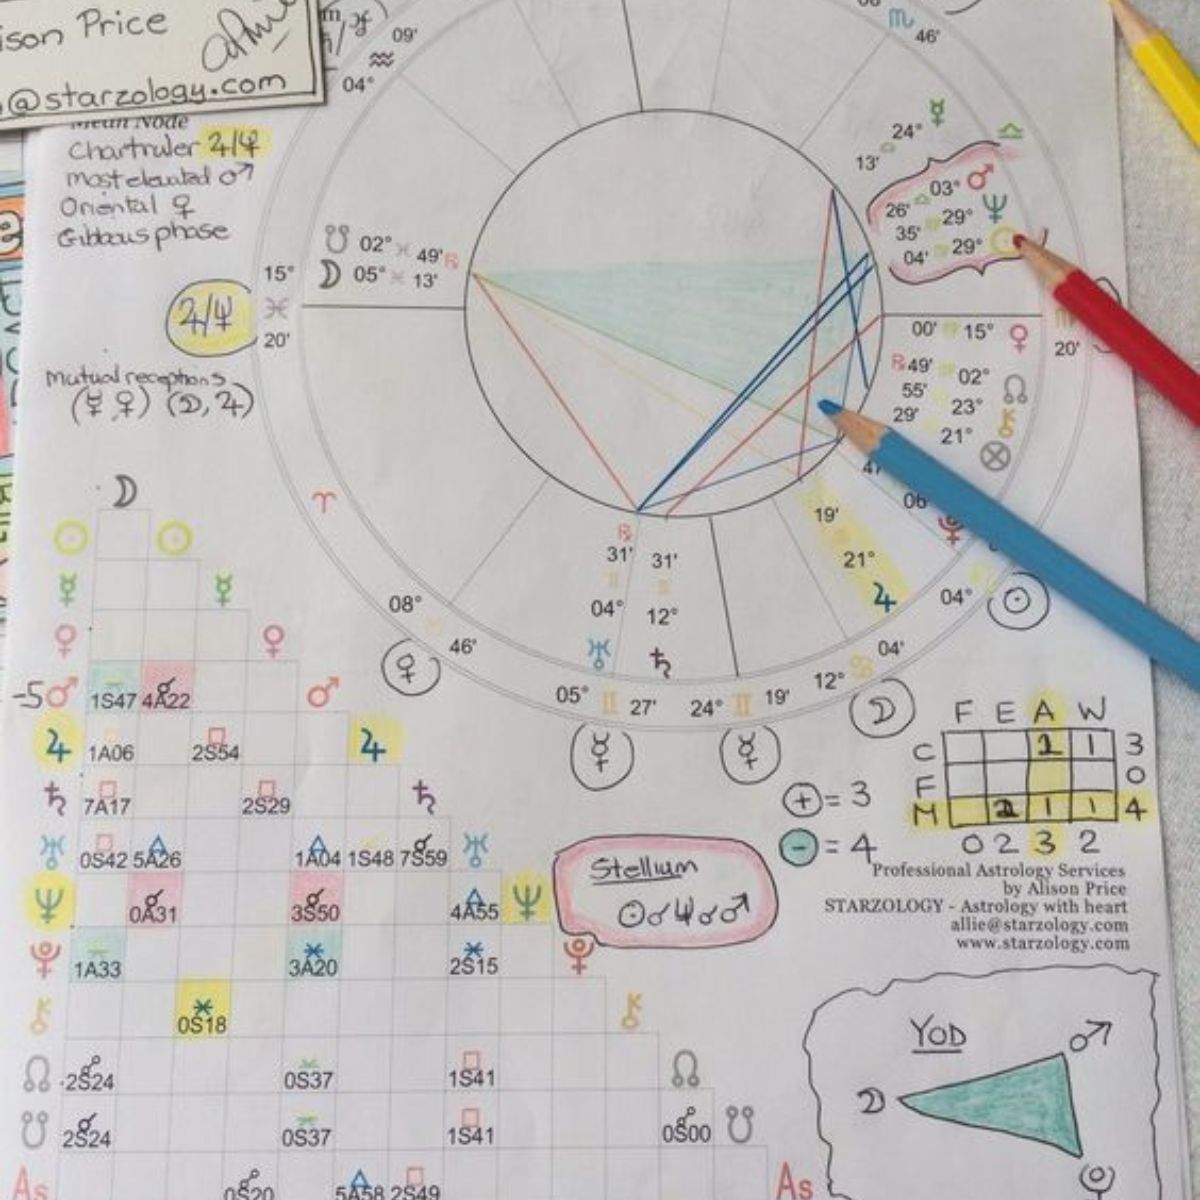 ison Price
@starzology.com
Mean Node
Chartruler ♃/♆
most elevated ♂
Oriental ♀
Gibbous phase
♃/♆
mutual receptions
(☿,♀) (☽,♃)
09'
♒
04°
♏
46'
☿
24°
13'
♎
03° ♂
26'
29° ♆
35'
29°
04'
☋ 02° ♓ 49' ℞
☽ 05° ♓ 13'
15°
♓
20'
00' 15° ♀
20'
℞ 49' 02° ☊
55' 23° ⚷
29' 21° ⊗
♈
08°
46'
♀
℞
31' 31'
04° 12°
♅ ♄
05° ♊ 27' 24° ♊ 19' 12° ♋ 04'
☿ ☿ ☽
19'
21°
♃
47'
06
04°
☉
☽
☉ ☉
☿ ☿
♀ ♀
-5 ♂ 1S47 4A22 ♂
♃ 1A06 2S54 ♃
♄ 7A17 2S29 ♄
♅ 0S42 5A26 1A04 1S48 7S59 ♅
♆ 0A31 3S50 4A55 ♆
♇ 1A33 3A20 2S15 ♇
⚷ 0S18 ⚷
☊ 2S24 0S37 1S41 ☊
☋ 2S24 0S37 1S41 0S00 ☋
As 0S20 5A58 2S49 As
F E A W
C 2 1 3
F 0
M 2 1 1 4
0 2 3 2
+ = 3
- = 4
Stellium
☉☌♆☌♂
Professional Astrology Services
by Alison Price
STARZOLOGY - Astrology with heart
allie@starzology.com
www.starzology.com
YOD
♂
☽